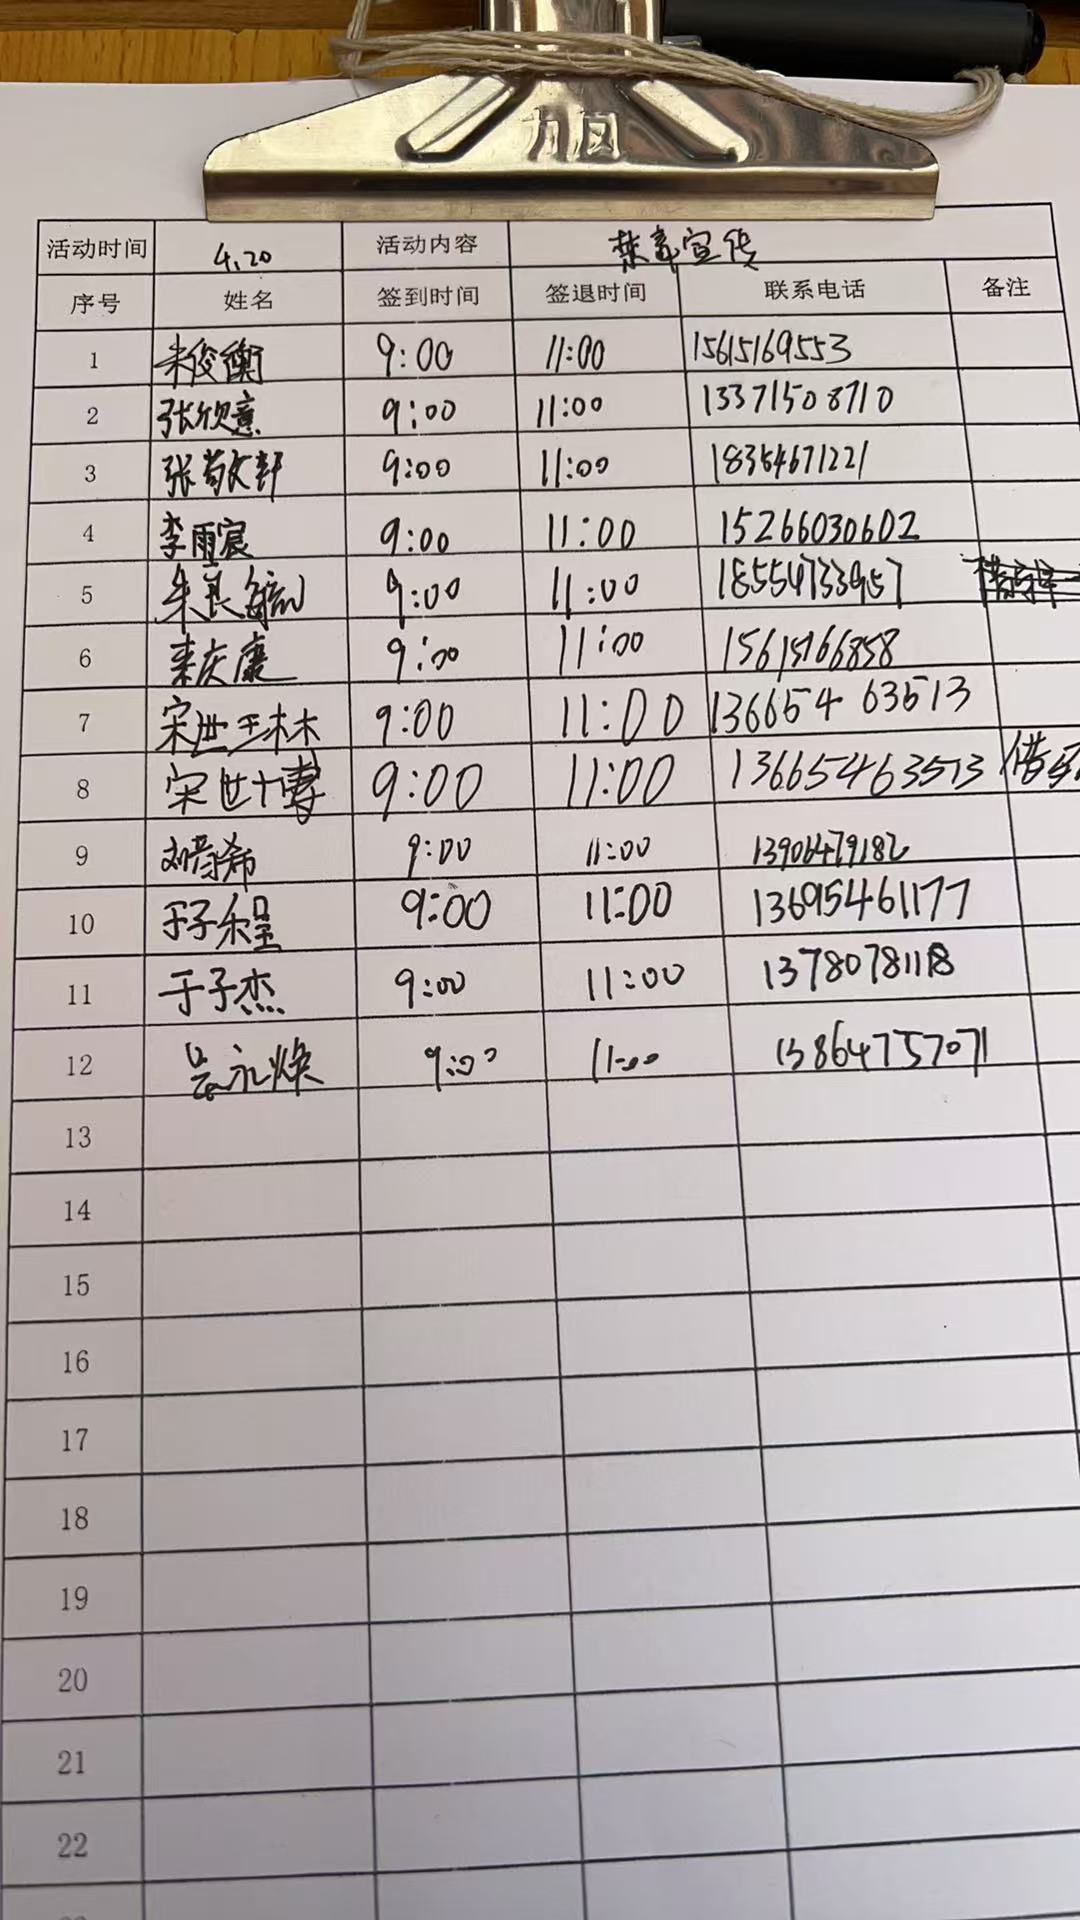 力风
活动时间 4.20 活动内容 禁毒宣传
序号 姓名 签到时间 签退时间 联系电话 备注
1 朱俊衡 9:00 11:00 15615169553
2 张欣意 9:00 11:00 13371508710
3 张敬轩 9:00 11:00 18354671221
4 李雨宸 9:00 11:00 15266030602
5 朱良毓 9:00 11:00 18554733957
6 袁庆康 9:00 11:00 15615166858
7 宋世琳 9:00 11:00 13665463513
8 宋世博 9:00 11:00 13665463513
9 刘晋希 9:00 11:00 13906479182
10 于子程 9:00 11:00 13695461177
11 于子杰 9:00 11:00 13780781118
12 吴永焕 9:00 11:00 13864757071
13
14
15
16
17
18
19
20
21
22